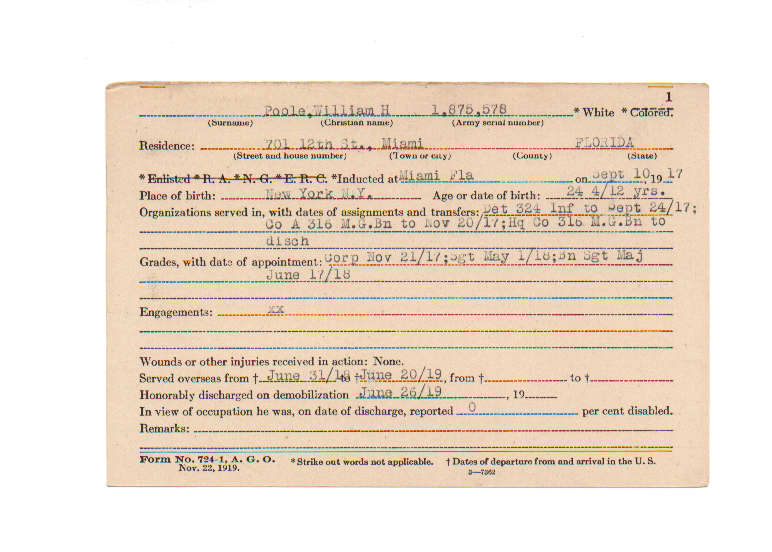 1
Poole,William H 1,875,578 * White * Colored.
(Surname) (Christian name) (Army serial number)
Residence: 701 12th St., Miami FLORIDA
(Street and house number) (Town or city) (County) (State)
* Enlisted * R. A. * N. G. * E. R. C. *Inducted at Miami Fla on Sept 10, 19 17
Place of birth: New York N.Y. Age or date of birth: 24 4/12 yrs.
Organizations served in, with dates of assignments and transfers: Det 324 Inf to Sept 24/17;
Co A 316 M.G.Bn to Nov 20/17;Hq Co 316 M.G.Bn to
disch
Grades, with date of appointment: Corp Nov 21/17;Sgt May 1/18;Bn Sgt Maj
June 17/18
Engagements: xx
Wounds or other injuries received in action: None.
Served overseas from † June 31/18 to † June 20/19, from † to †
Honorably discharged on demobilization June 26/19, 19
In view of occupation he was, on date of discharge, reported 0 per cent disabled.
Remarks:
Form No. 724-1, A. G. O. *Strike out words not applicable. † Dates of departure from and arrival in the U. S.
Nov. 22, 1919. 3—7362